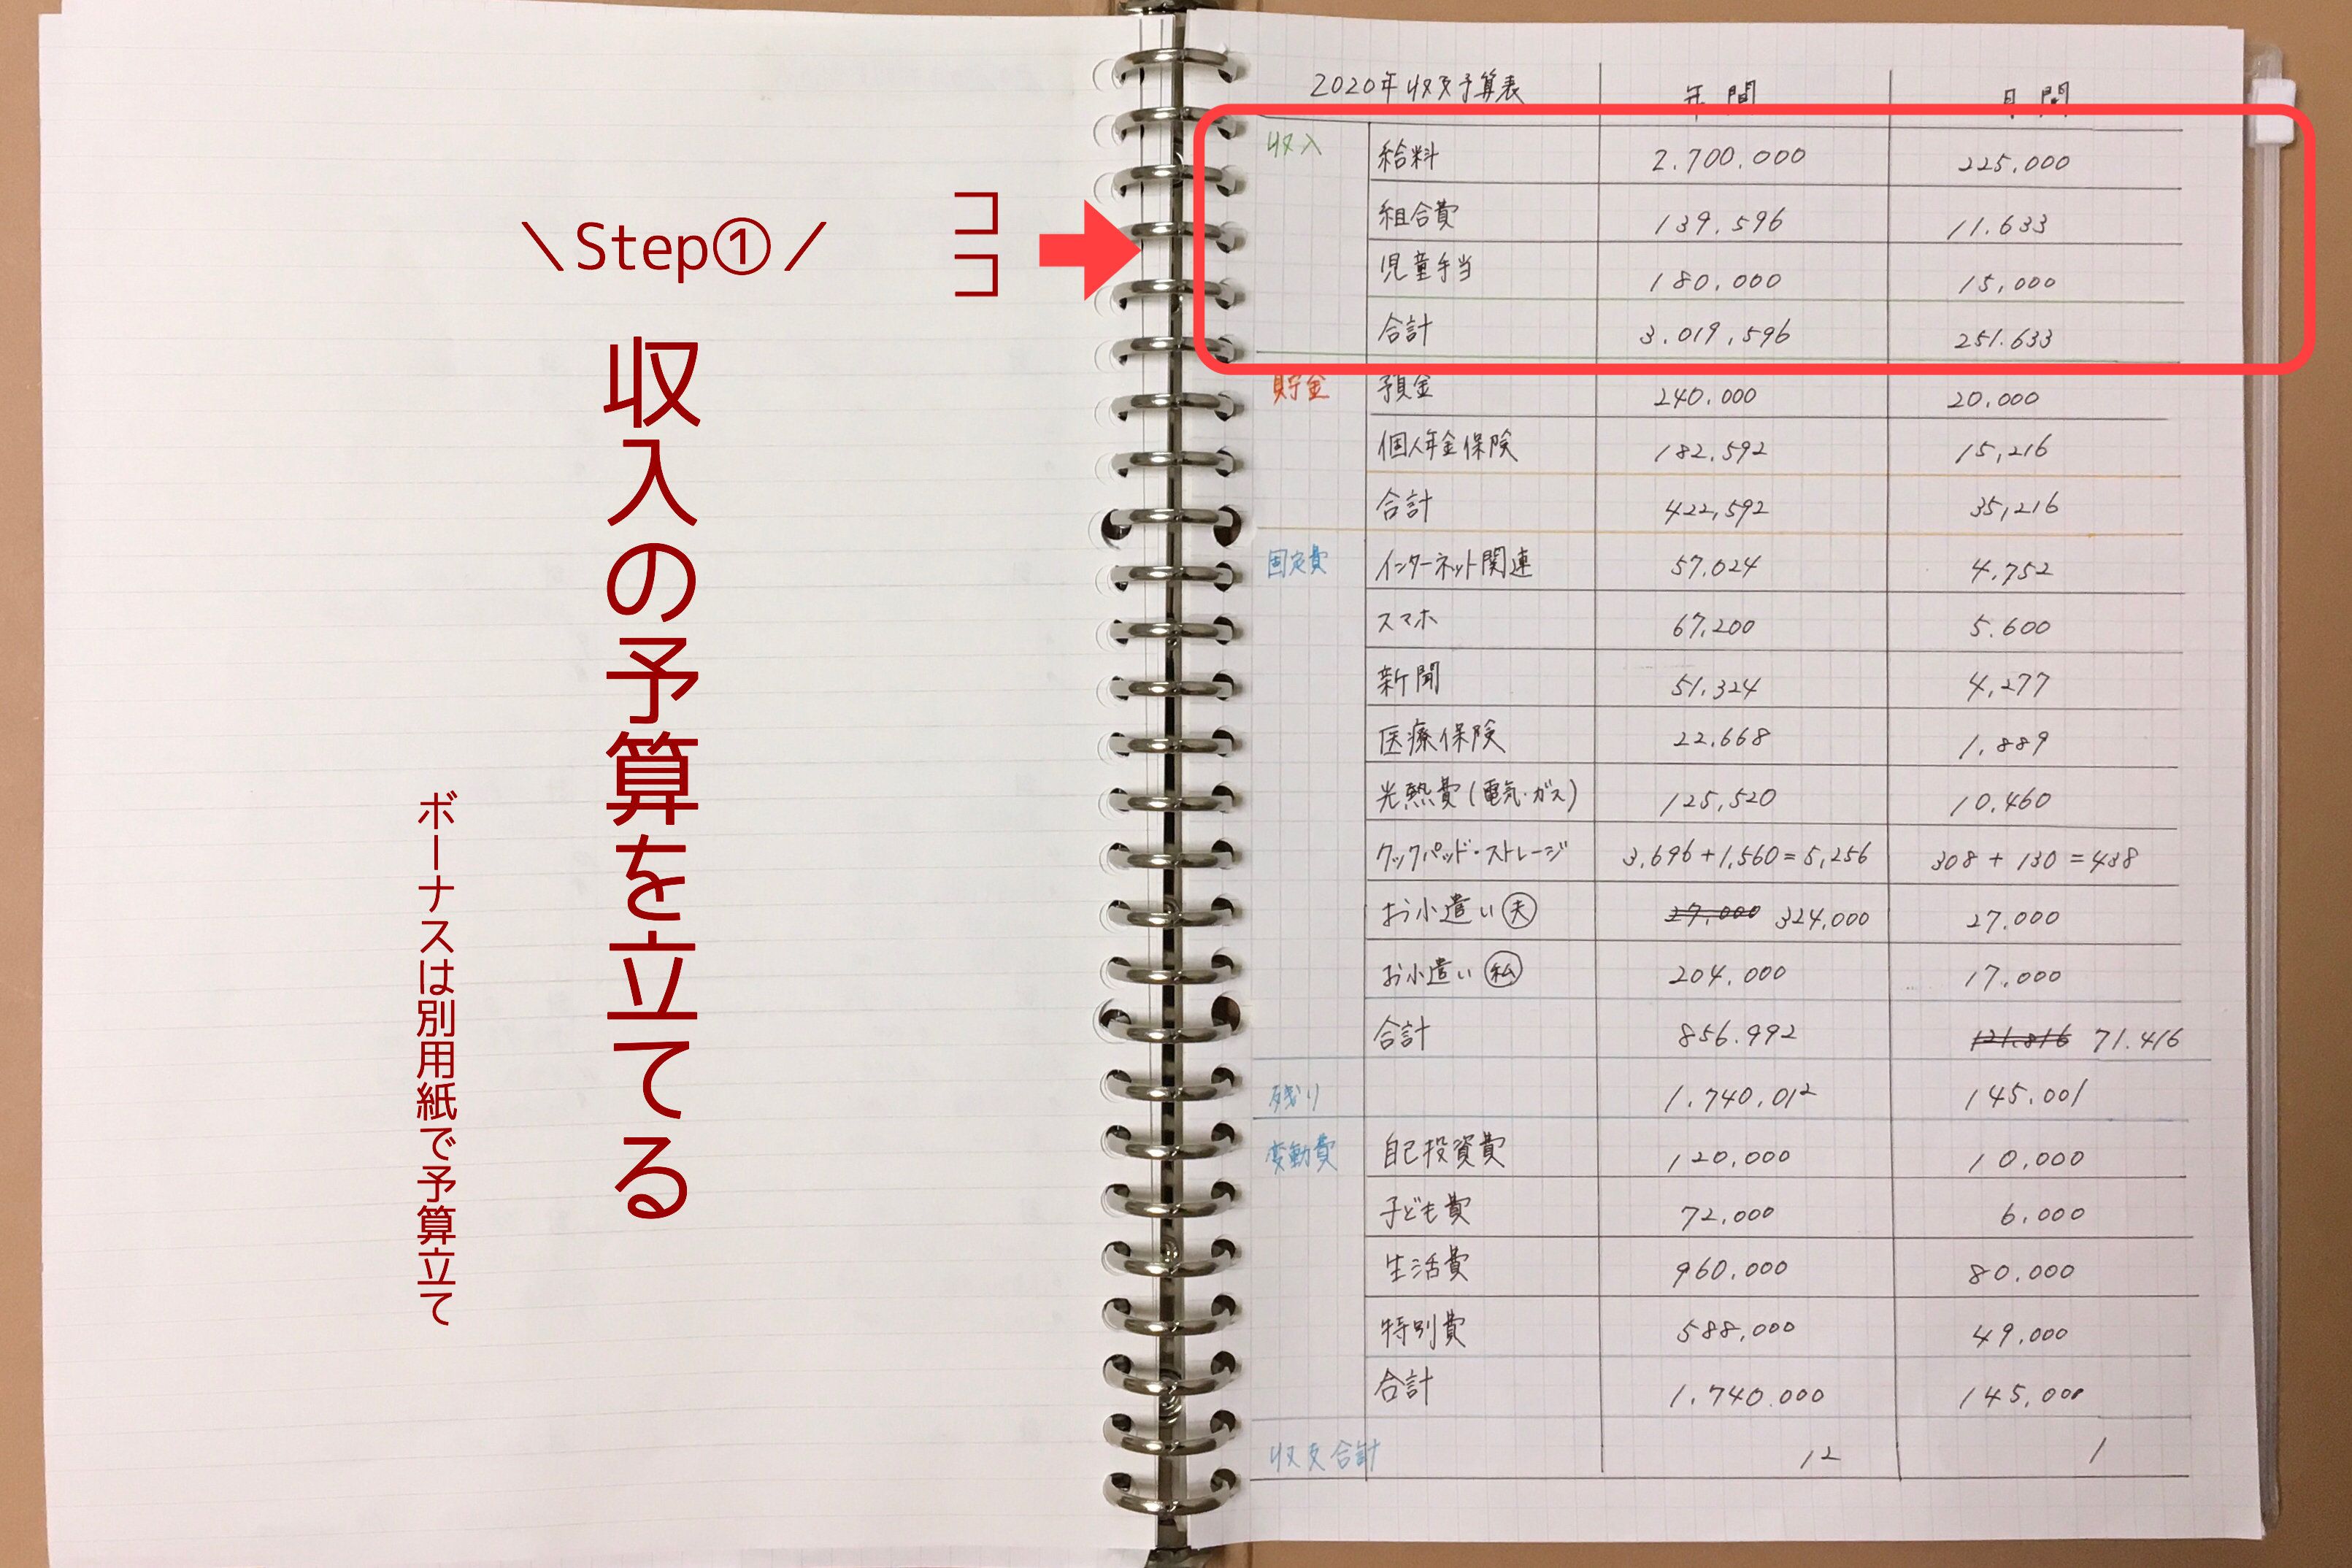 ＼Step①／
ココ
収入の予算を立てる
ボーナスは別用紙で予算立て
2020年収支予算表 年間 月間
収入 給料 2.700.000 225.000
組合費 139.596 11.633
児童手当 180.000 15,000
合計 3.019,596 251.633
貯金 預金 240.000 20.000
個人年金保険 182.592 15,216
合計 422,592 35,216
固定費 インターネット関連 57.024 4.752
スマホ 67,200 5.600
新聞 51.324 4,277
医療保険 22.668 1.889
光熱費(電気・ガス) 125,520 10.460
クックパッド・ストレージ 3,696+1,560=5,256 308+130=438
お小遣い夫 27,000 324,000 27.000
お小遣い私 204.000 17.000
合計 856.992 121.816 71.416
残り 1.740.012 145.001
変動費 自己投資費 120,000 10,000
子ども費 72.000 6.000
生活費 960.000 80.000
特別費 588,000 49.000
合計 1.740.000 145,000
収支合計 12 1